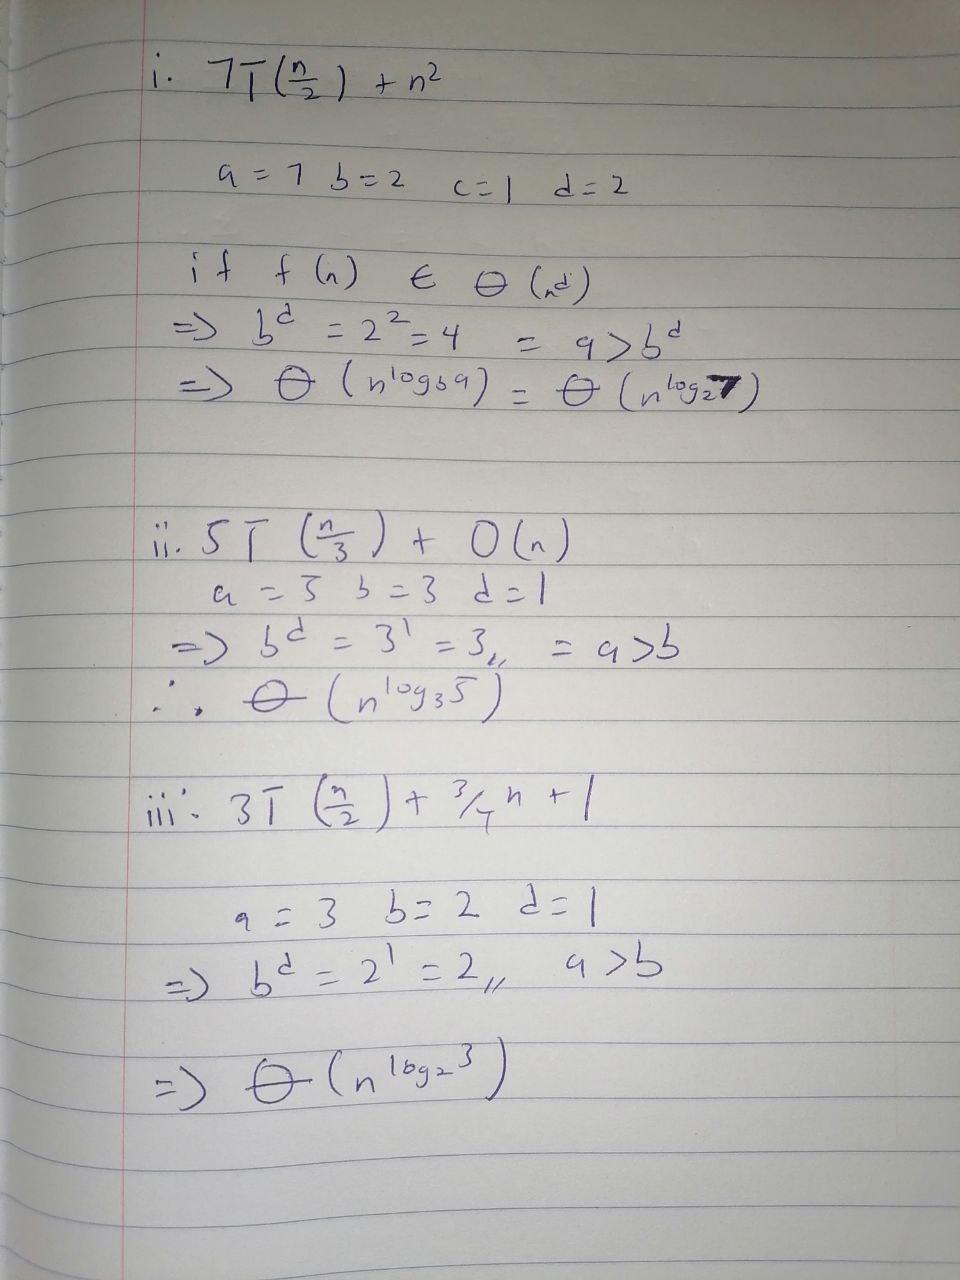 i. 7T(n/2) + n²
a = 7 b = 2 c = 1 d = 2
if f(n) ∈ Θ(n^d)
=> b^d = 2² = 4 = a > b^d
=> Θ(n^log_b a) = Θ(n^log₂7)
ii. 5T(n/3) + O(n)
a = 5 b = 3 d = 1
=> b^d = 3¹ = 3,, = a > b
∴ Θ(n^log₃5)
iii. 3T(n/2) + 3/4 n + 1
a = 3 b = 2 d = 1
=> b^d = 2¹ = 2,, a > b
=> Θ(n^log₂3)